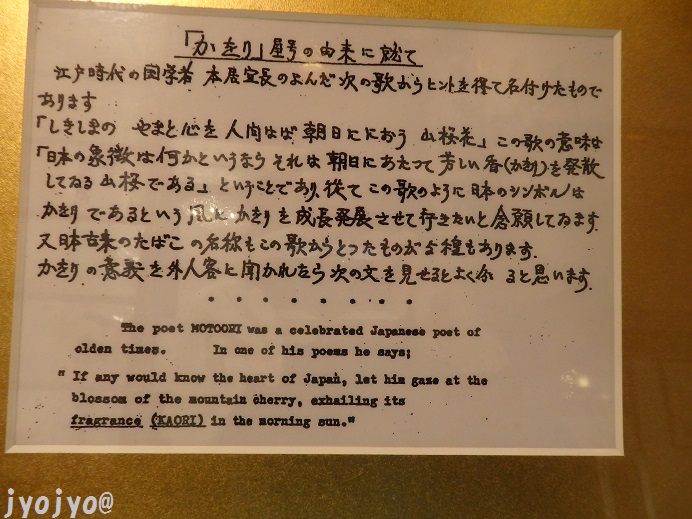 「かをり」屋号の由来に就て
江戸時代の国学者 本居宣長のよんだ次の歌からヒントを得て名付けたもので
あります
「しきしまの やまと心を 人問はば 朝日ににおう 山桜花」この歌の意味は
「日本の象徴は何かというなら それは 朝日にあたって芳しい香(かをり)を発散
してゐる 山桜である」ということであり、従て この歌のように日本のシンボルは
かをり であるという風に かをり を成長発展させて行きたいと念願してゐます.
又日本古来のたばこ の名称もこの歌からとったものが5種もあります.
かをり の意義を外人客に聞かれたら次の文を見せるとよく分 ると思います.
The poet MOTOORI was a celebrated Japanese poet of
olden times. In one of his poems he says;
" If any would know the heart of Japan, let him gaze at the
blossom of the mountain cherry, exhaling its
fragrance (KAORI) in the morning sun."
jyojyo@